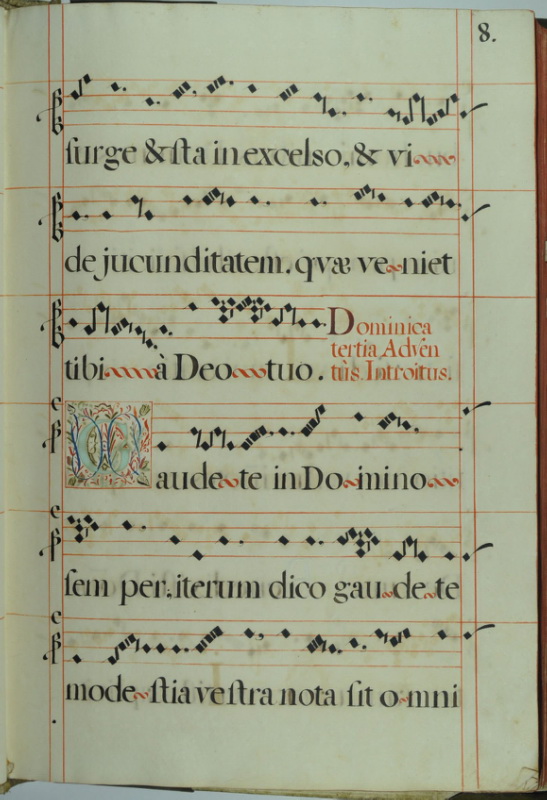 8.
ſurge & ſta in excelso, & vi
de jucunditatem. qvæ ve niet
tibi à Deo tuo.
Dominica
tertia Adven
tùs. Introitus.
Gaudete in Domino
ſem per. iterum dico gau de te
mode ſtia veſtra nota ſit o mni